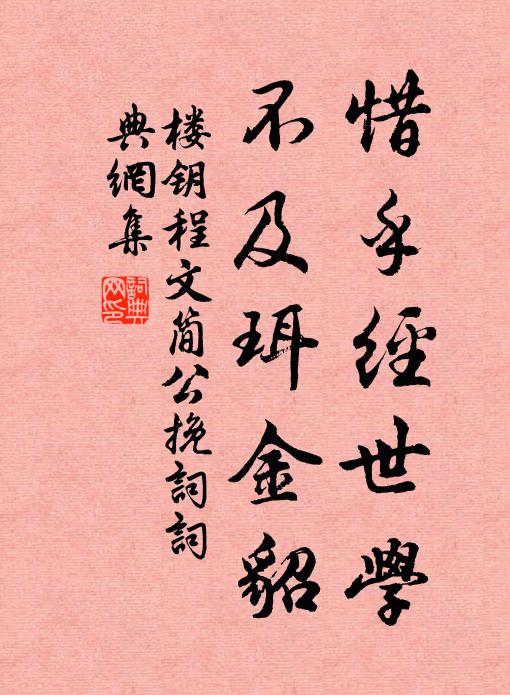 惜乎經世學
不及珥金貂
楼钥程文简公挽词詞
典網集
詞典
网印